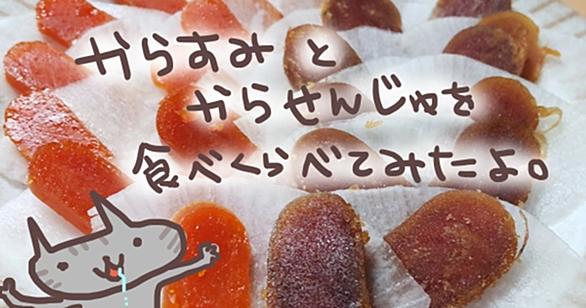 からすみと
からせんじゅを
食べくらべてみたよ。